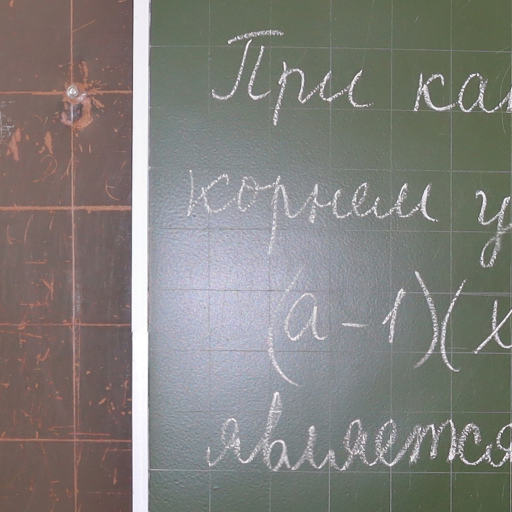 При ка
корнем у
(a-1)(x
является